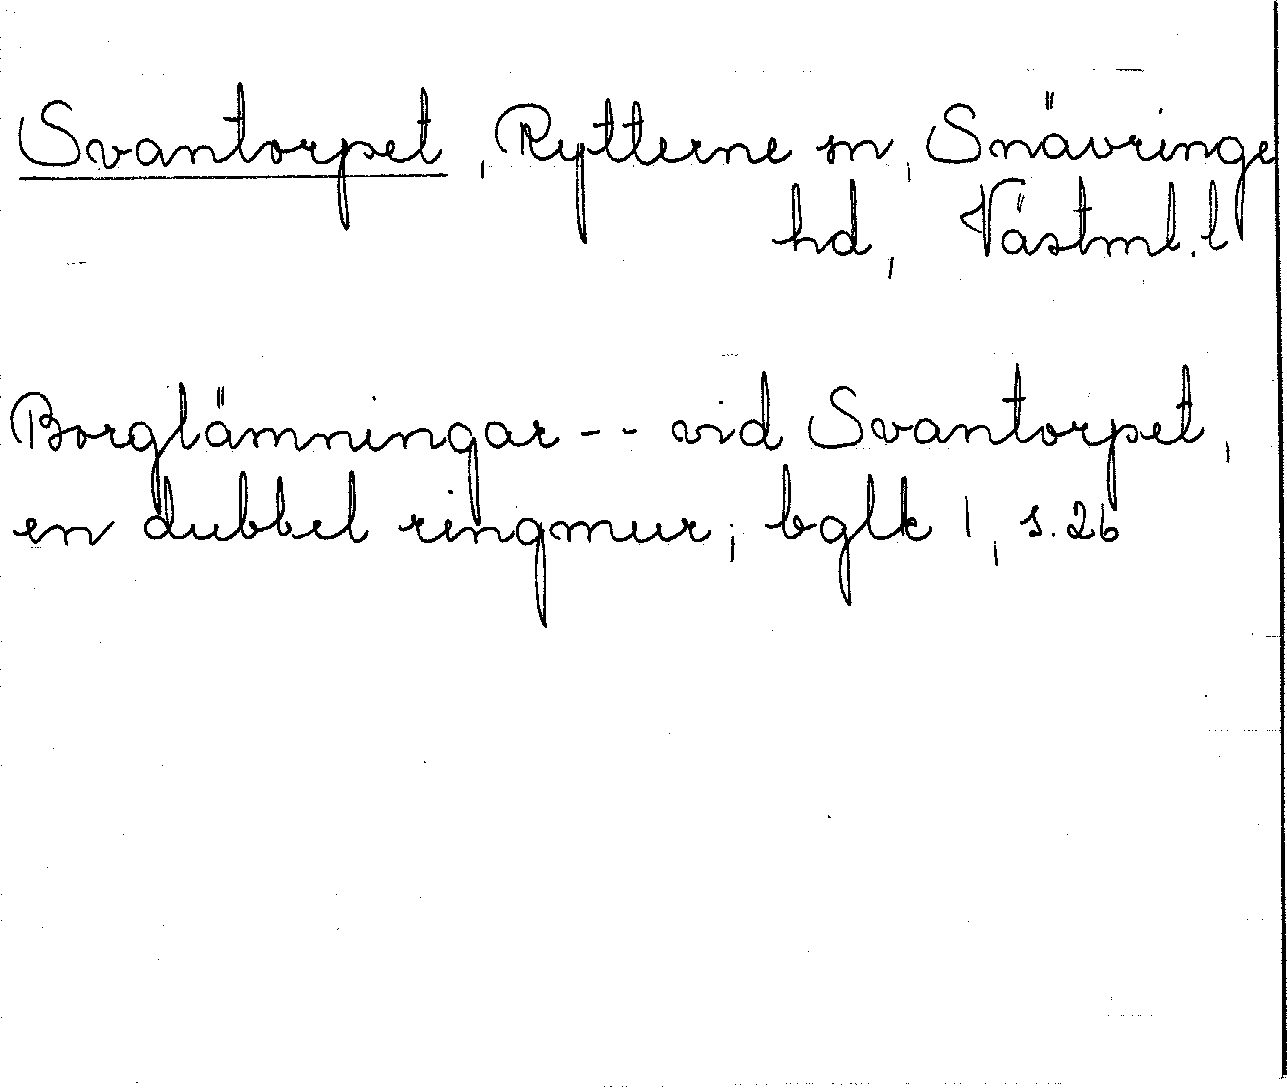 Svantorpet, Rytterne sn, Snävringe
hd, Västml. l
Borglämningar -- vid Svantorpet,
en dubbel ringmur; bglk 1, s. 26